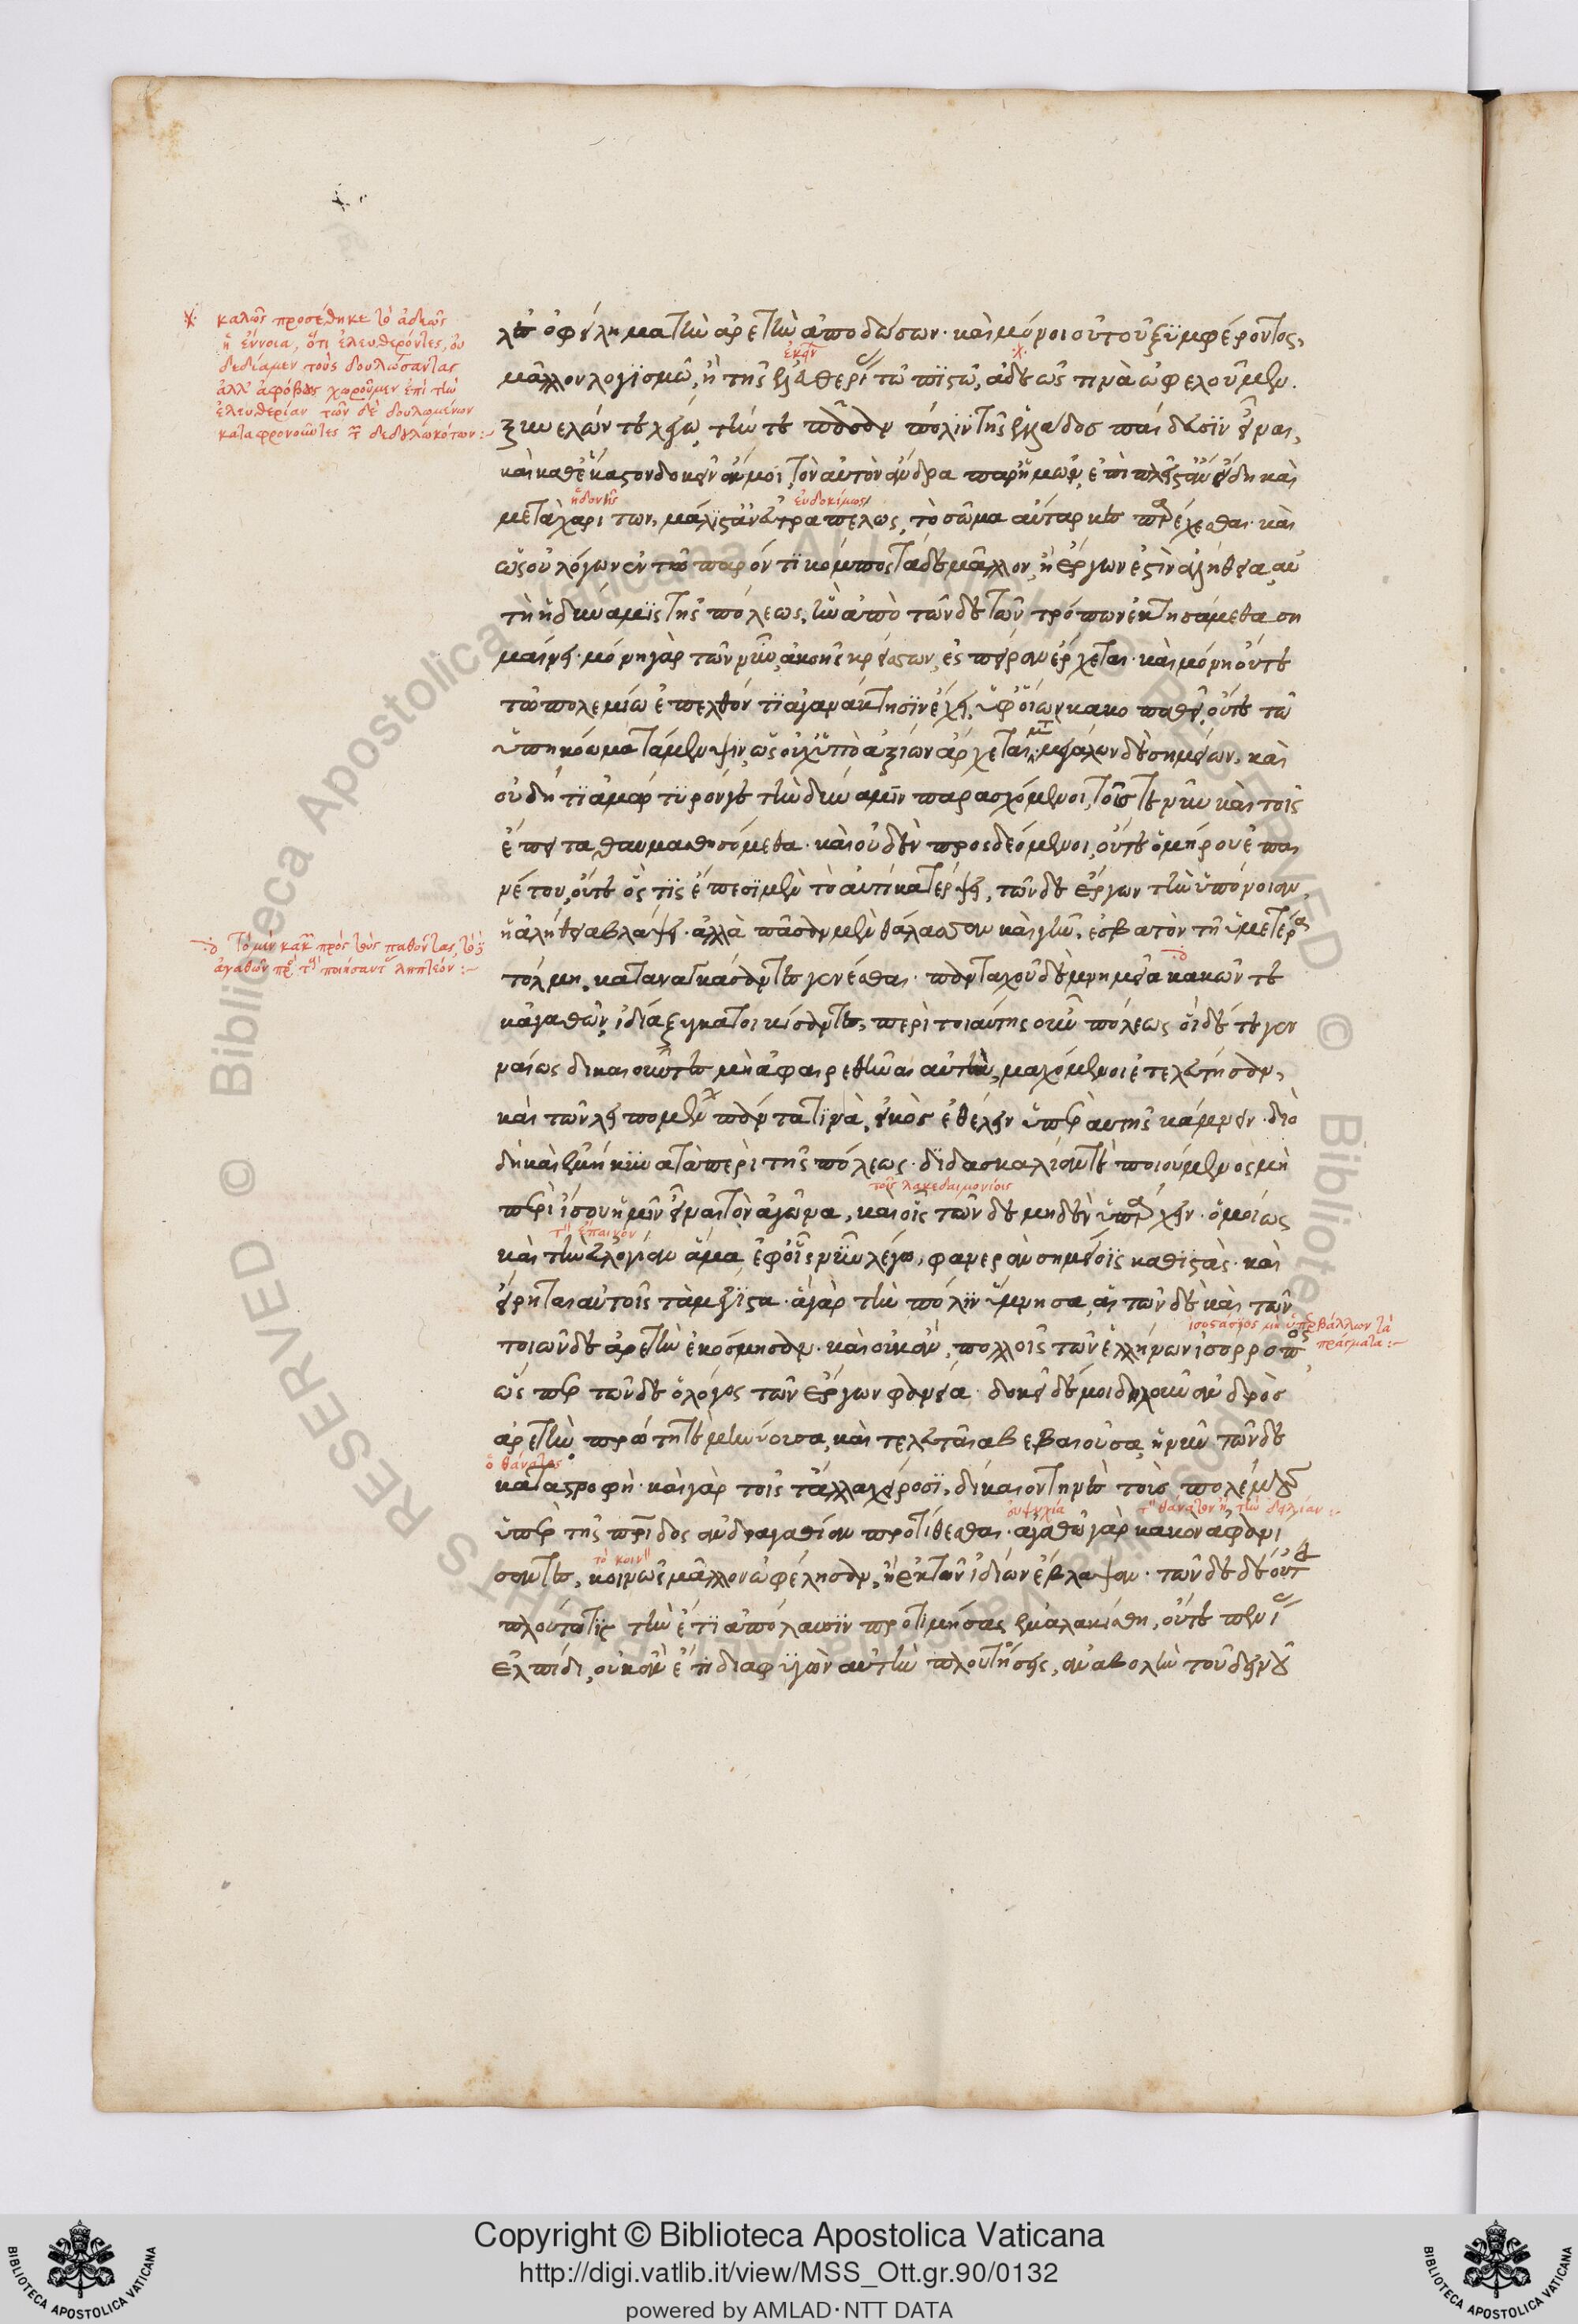 καλῶς προσέθηκε τὸ ἀδεῶς
ἡ ἔννοια, ὅτι ἐλευθερόντες, οὐ
δεδίαμεν τοὺς δουλώσαντας
ἀλλ' ἀφόβως χωροῦμεν ἐπὶ τὴν
ἐλευθερίαν τῶν δὲ δουλωμένων
καταφρονοῦντες τῶν δεδουλωκότων:-
τὸ μὲν κακῶν πρὸς τοὺς παθόντας, τὸ δὲ
ἀγαθῶν πρὸς τοὺς ποιήσαντας ληπτέον:-
ὀφείλημα τὴν ἀρετὴν ἀποδώσων· καὶ μόνοι οὐ τοῦ ξυμφέροντος,
μᾶλλον λογισμῶ, ἢ τῆς ἐλευθερίας τῶ πιστῶ, ἀδεῶς τινὰ ὠφελοῦμεν.
ξυνελών τε λέγω, τήν τε πᾶσαν πόλιν τῆς ἑλλάδος παίδευσιν εἶναι,
καὶ καθέκαστον δοκεῖν ἄν μοι, τὸν αὐτὸν ἄνδρα παρ' ἡμῶν, ἐπὶ πλεῖστ' ἂν εἴδη καὶ
ἡδονῆς
εὐδοκίμως
μετὰ χαρίτων, μάλιστ' ἂν εὐτραπέλως, τὸ σῶμα αὔταρκες παρέχεσθαι. καὶ
ὡς οὐ λόγων ἐν τῶ παρόντι κόμπος τάδε μᾶλλον, ἢ ἔργων ἐστὶν ἀλήθεια, αὐ
τὴ ἡ δύναμις τῆς πόλεως, ἣν ἀπὸ τῶνδε τῶν τρόπων ἐκτησάμεθα ση
μαίνει. μόνη γὰρ τῶν νῦν, ἀκοῆς κρείσσων, ἐς πεῖραν ἔρχεται· καὶ μόνη οὔτε
τῶ πολεμίω ἐπελθόντι ἀγανάκτησιν ἔχει, ὑφ' οἵων κακοπαθεῖ, οὔτε τῶ
ὑπηκόω κατάμεμψιν, ὡς οὐχ ὑπὸ ἀξίων ἄρχεται. μεγάλων δὲ σημείων, καὶ
οὐ δή τι ἀμάρτυρόν γε τὴν δύναμιν παρασχόμενοι, τοῖς τε νῦν καὶ τοῖς
ἔπειτα θαυμασθησόμεθα· καὶ οὐδὲν προσδεόμενοι, οὔτε ὁμήρου ἐπαι
νέτου, οὔτε ὅς τις ἔπεσι μὲν τὸ αὐτίκα τέρψει, τῶν δὲ ἔργων τὴν ὑπόνοιαν,
ἡ ἀλήθεια βλάψει· ἀλλὰ πᾶσαν μὲν θάλασσαν καὶ γῆν, ἐσβατὸν τῆ ἡμετέρα
τόλμη, καταναγκάσαντες γενέσθαι. πανταχοῦ δὲ μνημεῖα κακῶν τε
κἀγαθῶν, ἀίδια ξυγκατοικίσαντες, περὶ τοιαύτης οὖν πόλεως οἵδε τε γεν
ναίως δικαιοῦντες μὴ ἀφαιρεθῆναι αὐτὴν, μαχόμενοι ἐτελεύτησαν,
καὶ τῶν λειπομένων πάντα τινὰ, εἰκὸς ἐθέλειν ὑπὲρ αὐτῆς κάμνειν· διὸ
δὴ καὶ ἐμήκυνα τὰ περὶ τῆς πόλεως· διδασκαλίαν τε ποιούμενος μὴ
τοῖς λακεδαιμονίοις
περὶ ἴσου ἡμῖν εἶναι τὸν ἀγῶνα, καὶ οἷς τῶνδε μηδὲν ὑπάρχει· ὁμοίως
τὸν ἔπαινον
καὶ τὴν εὐλογίαν ἅμα ἐφ' οἷς νῦν λέγω, φανερὰν σημείοις καθιστάς· καὶ
εἴρηται αὐτοῖς τὰ μέγιστα· ἃ γὰρ τὴν πόλιν ὕμνησα, αἱ τῶνδε καὶ τῶν
ἰσοστάσιος μὴ ὑπερβάλλων τὰ
πράγματα:-
τοιῶνδε ἀρετὴν ἐκόσμησαν· καὶ οὐκ ἂν, πολλοῖς τῶν ἑλλήνων ἰσόρροπος
ὥσπερ τῶνδε ὁ λόγος τῶν ἔργων φανεία. δοκεῖ δέ μοι δηλοῦν ἀνδρὸς
ἀρετὴν πρώτη τε μηνύουσα, καὶ τελευταία βεβαιοῦσα, ἡ νῦν τῶνδε
ὁ θάνατος
καταστροφή· καὶ γὰρ τοῖς τἄλλα χείροσι, δίκαιον τὴν ἐς τοὺς πολέμους
εὐψυχία
τὸν θάνατον ἢ τὴν δειλίαν:-
ὑπὲρ τῆς πατρίδος ἀνδραγαθίαν προτίθεσθαι· ἀγαθῶ γὰρ κακὸν ἀφανί
τὸ κοινὸν
σαντες, κοινῶς μᾶλλον ὠφέλησαν, ἢ ἐκ τῶν ἰδίων ἔβλαψαν. τῶνδε δὲ οὔτε
πλούτω τις τὴν ἔτι ἀπόλαυσιν προτιμήσας ἐμαλακίσθη, οὔτε πενίας
ἐλπίδι, ὡς κἂν ἔτι διαφυγὼν αὐτὴν πλουτήσειεν, ἀναβολὴν τοῦ δεινοῦ
Copyright © Biblioteca Apostolica Vaticana
http://digi.vatlib.it/view/MSS_Ott.gr.90/0132
powered by AMLAD·NTT DATA